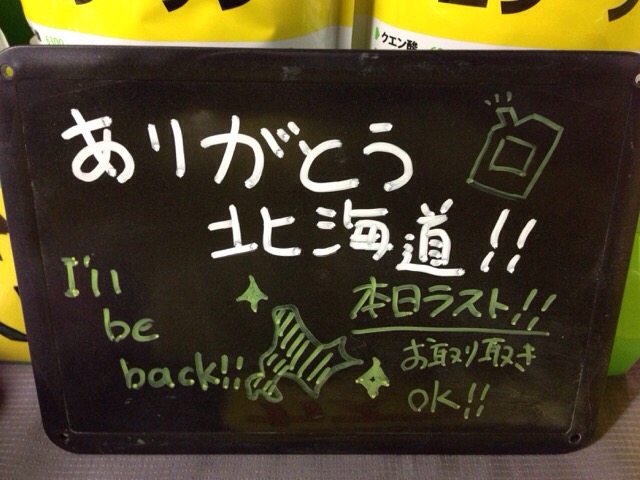 クエン酸
ありがとう
北海道!!
I'll
be
back!!
本日ラスト!!
お取り取き
OK!!